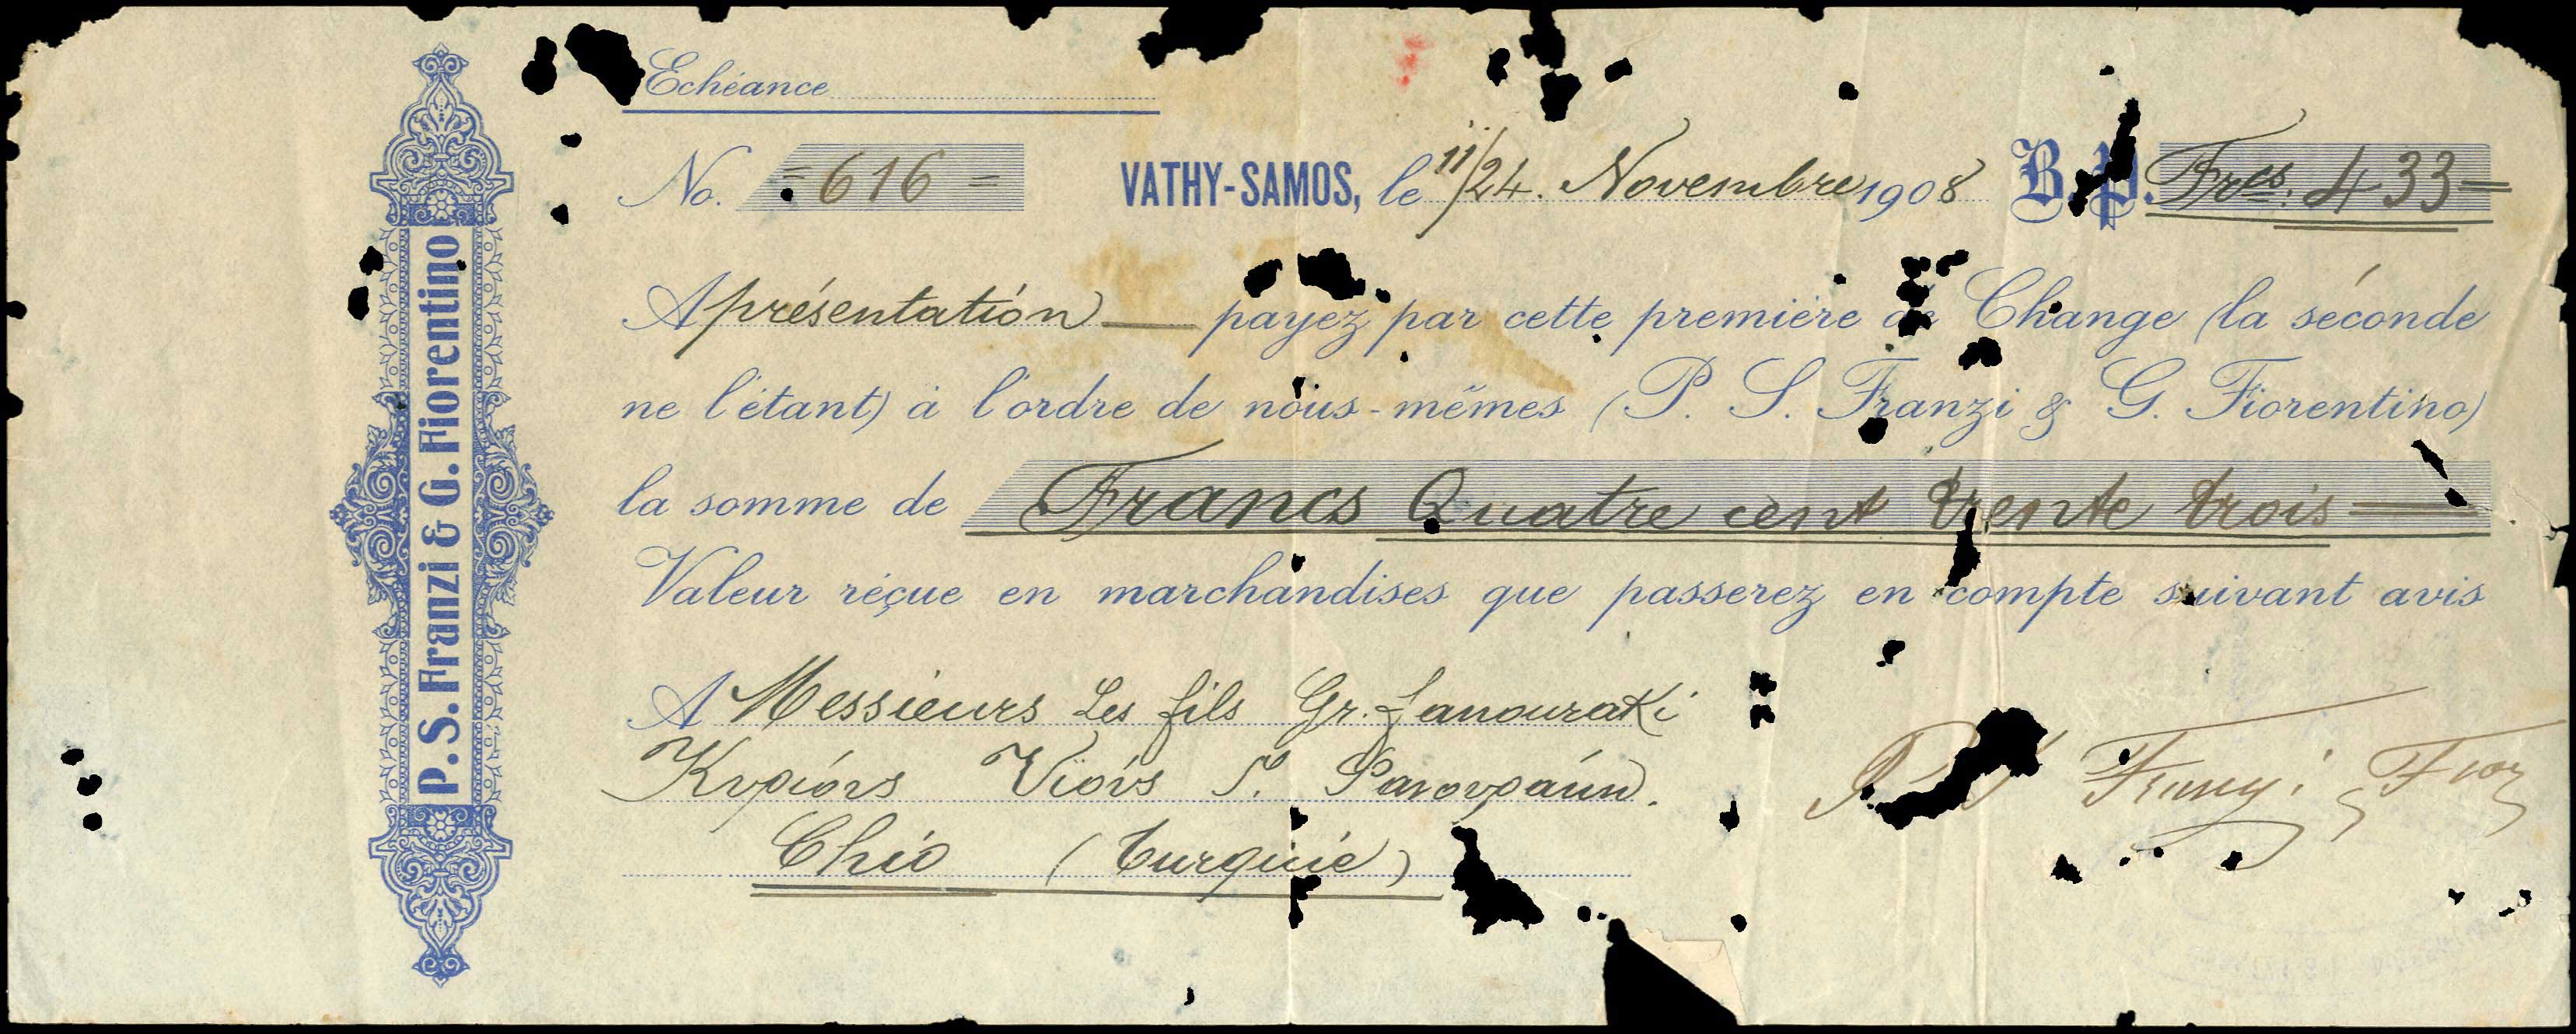 P. S. Franzi & G. Fiorentino
Echéance
No. = 616 =
VATHY-SAMOS, le 11/24. Novembre 1908
B. P. Frcs. 433 =
A présentation payez par cette première de Change (la séconde
ne l'étant) à l'ordre de nous-mêmes (P. S. Franzi & G. Fiorentino)
la somme de Francs Quatre cent trente trois
Valeur réçue en marchandises que passerez en compte suivant avis
A Messieurs Les fils Gr.
Υιούς
Chio (Turquie)
Franzi